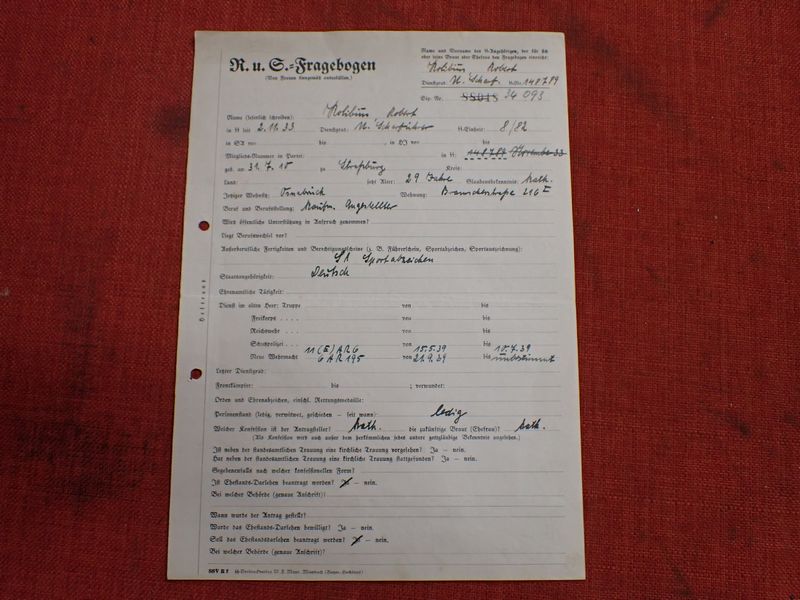 R. u. S.-Fragebogen
(Von Frauen sinngemäß auszufüllen!)
Name und Vorname des SS-Angehörigen, der für sich
oder seine Braut oder Ehefrau den Fragebogen einreicht:
Robert
Dienstgrad: U. Scharf. SS-Nr. 148789
Sip. Nr. 34 093
Name (leserlich schreiben): Robert
in SS seit 2.11.33 Dienstgrad: U. Scharführer SS-Einheit: 8/82
in SA von bis , in HJ von bis
Mitglieds-Nummer in Partei: in SS: 148789 November 33
geb. am 31.7.10 zu Straßburg Kreis:
Land: jetzt Alter: 29 Jahre Glaubensbekenntnis: Kath.
Jetziger Wohnsitz: Osnabrück Wohnung:
Beruf und Berufsstellung: Kaufm. Angestellter
Wird öffentliche Unterstützung in Anspruch genommen?
Liegt Berufswechsel vor?
Außerberufliche Fertigkeiten und Berechtigungsscheine (z. B. Führerschein, Sportabzeichen, Sportauszeichnung):
SA Sportabzeichen
Staatsangehörigkeit: Deutsch
Ehrenamtliche Tätigkeit:
Dienst im alten Heer: Truppe von bis
Freikorps . . . . von bis
Reichswehr . . . von bis
Schutzpolizei . . . . von 15.5.39 bis 10.7.39
Neue Wehrmacht 6 AR 195 von 21.9.39 bis unbestimmt
Letzter Dienstgrad:
Frontkämpfer: bis ; verwundet:
Orden und Ehrenabzeichen, einschl. Rettungsmedaille:
Personenstand (ledig, verwitwet, geschieden – seit wann): ledig
Welcher Konfession ist der Antragsteller? Kath. die zukünftige Braut (Ehefrau)? Kath.
(Als Konfession wird auch außer dem herkömmlichen jedes andere gottgläubige Bekenntnis angesehen.)
Ist neben der standesamtlichen Trauung eine kirchliche Trauung vorgesehen? Ja – nein.
Hat neben der standesamtlichen Trauung eine kirchliche Trauung stattgefunden? Ja – nein.
Gegebenenfalls nach welcher konfessionellen Form?
Ist Ehestands-Darlehen beantragt worden? Ja – nein.
Bei welcher Behörde (genaue Anschrift)?
Wann wurde der Antrag gestellt?
Wurde das Ehestands-Darlehen bewilligt? Ja – nein.
Soll das Ehestandsdarlehen beantragt werden? Ja – nein.
Bei welcher Behörde (genaue Anschrift)?